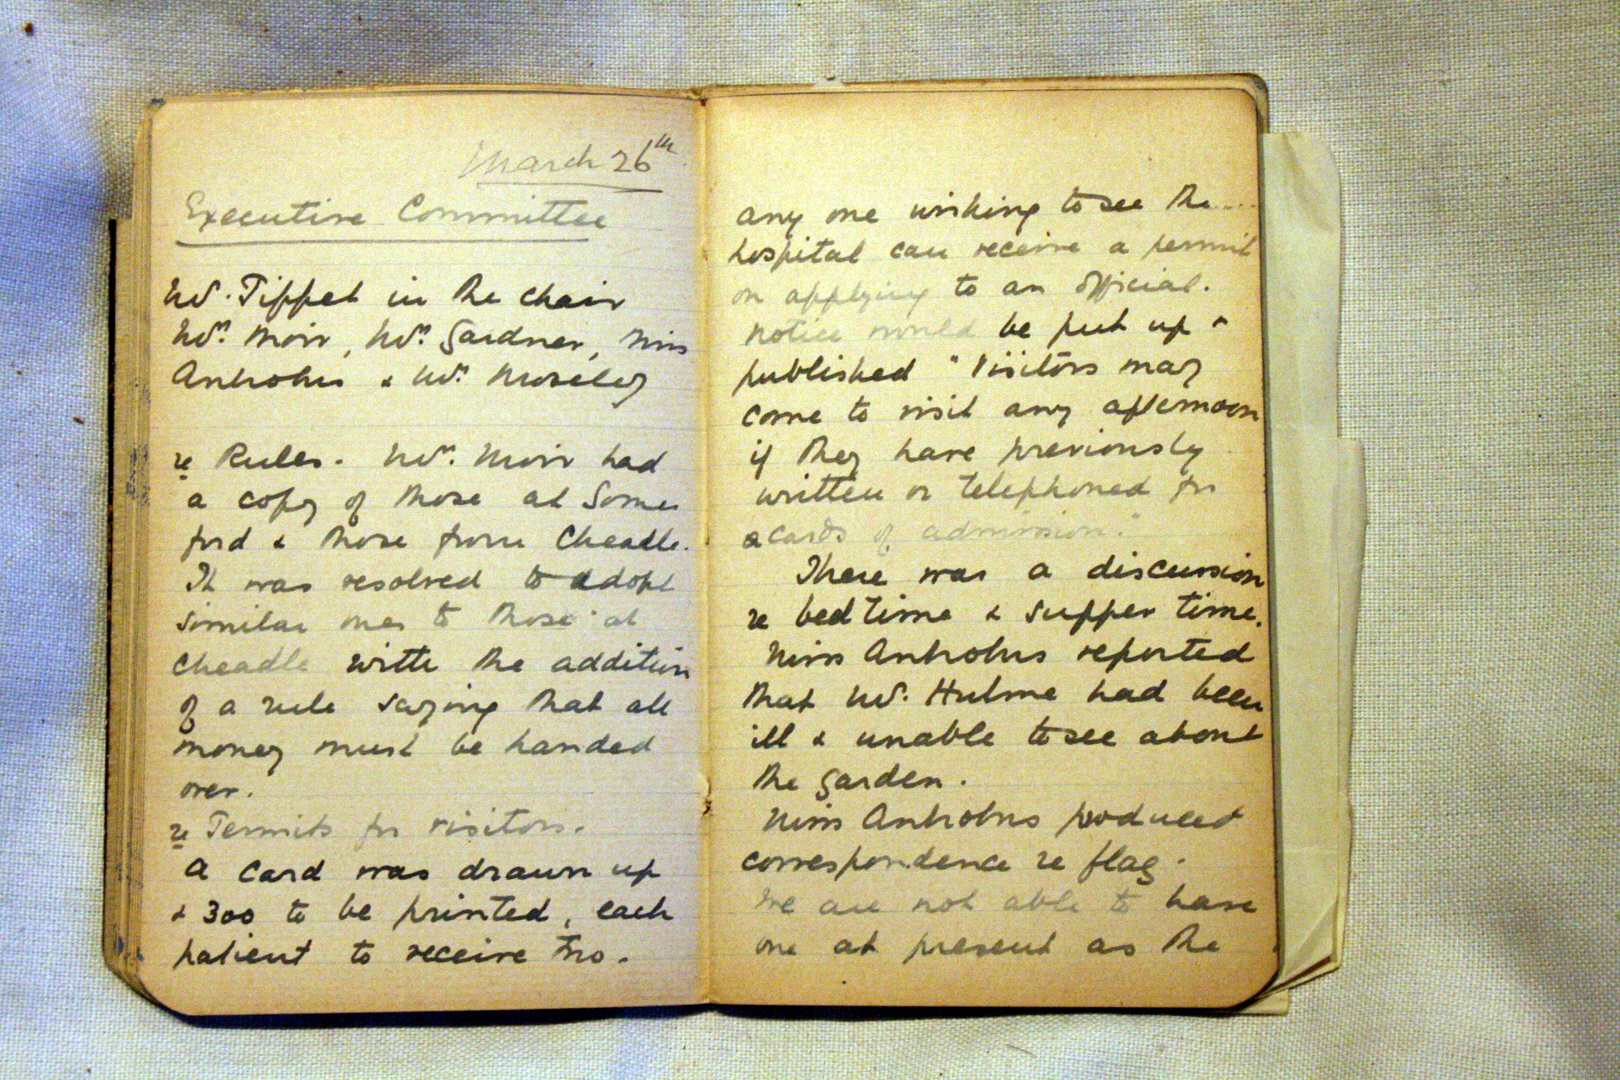 March 26th
Executive Committee
Mr. Tippet in the chair
Mrs. Moir, Mrs. Gardner, Miss
Antrobus & Mrs. Moseley
re Rules. Mrs. Moir had
a copy of those at Somer
ford & those from Cheadle.
It was resolved to adopt
similar ones to those at
Cheadle with the addition
of a rule saying that all
money must be handed
over.
re Permits for visitors.
A card was drawn up
& 300 to be printed, each
patient to receive two.
any one wishing to see the
hospital can receive a permit
on applying to an official.
Notice would be put up &
published "Visitors may
come to visit any afternoon
if they have previously
written or telephoned for
a cards of admission."
There was a discussion
re bed time & supper time.
Miss Antrobus reported
that Mr. Hulme had been
ill & unable to see about
the garden.
Miss Antrobus produced
correspondence re flag.
We are not able to have
one at present as the